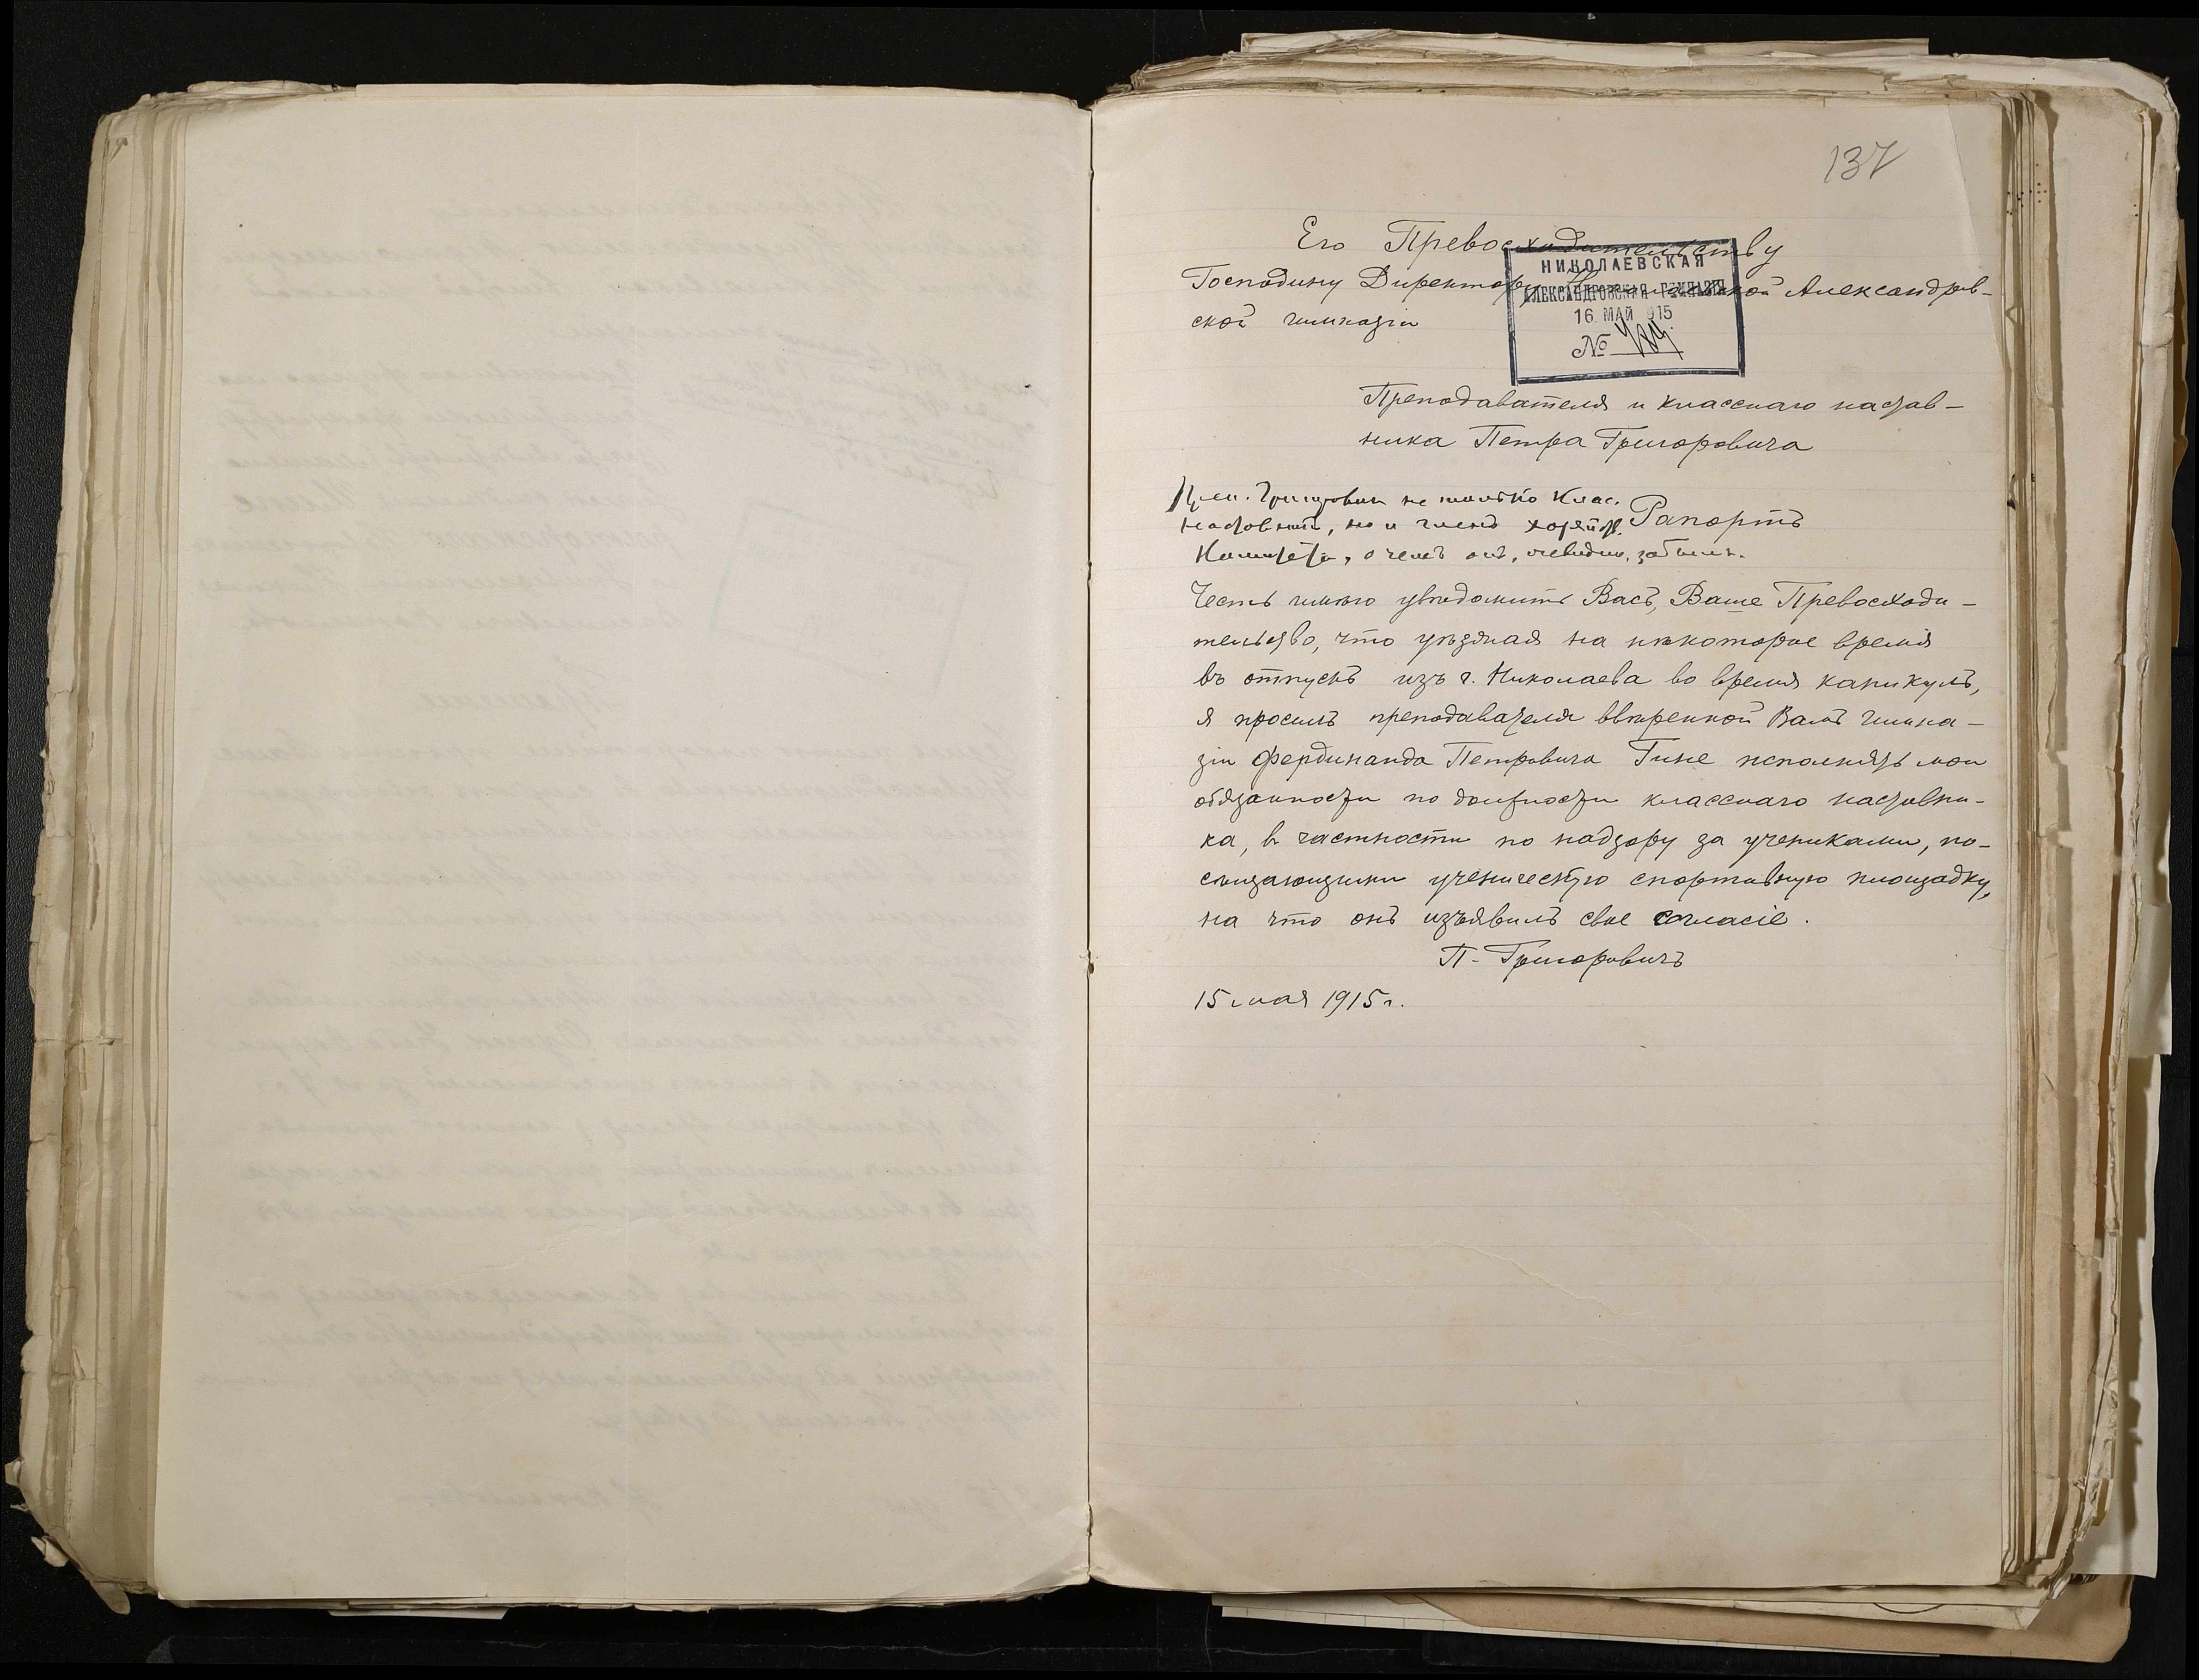 137
Его Превосходительству
Господину Директору Николаевской Александров-
ской гимназіи
НИКОЛАЕВСКАЯ
АЛЕКСАНДРОВСКАЯ ГИМНАЗІЯ
16 МАЙ 915
№
Преподавателя и класснаго настав-
ника Петра Григоровича
Преп. Григорович не только клас.
наставник, но и членъ хозяйств.
Комитета, о чемъ онъ, очевидно, забылъ.
Рапортъ
Честь имѣю увѣдомить Васъ, Ваше Превосходи-
тельство, что уѣзжая на нѣкоторое время
въ отпускъ изъ г. Николаева во время каникулъ,
я просилъ преподавателя ввѣренной Вамъ гимна-
зіи Фердинанда Петровича Гине исполнять мои
обязанности по должности класснаго наставни-
ка, въ частности по надзору за учениками, по-
сѣщающими ученическую спортивную площадку,
на что онъ изъявилъ свое согласіе.
П. Григоровичъ
15 мая 1915 г.